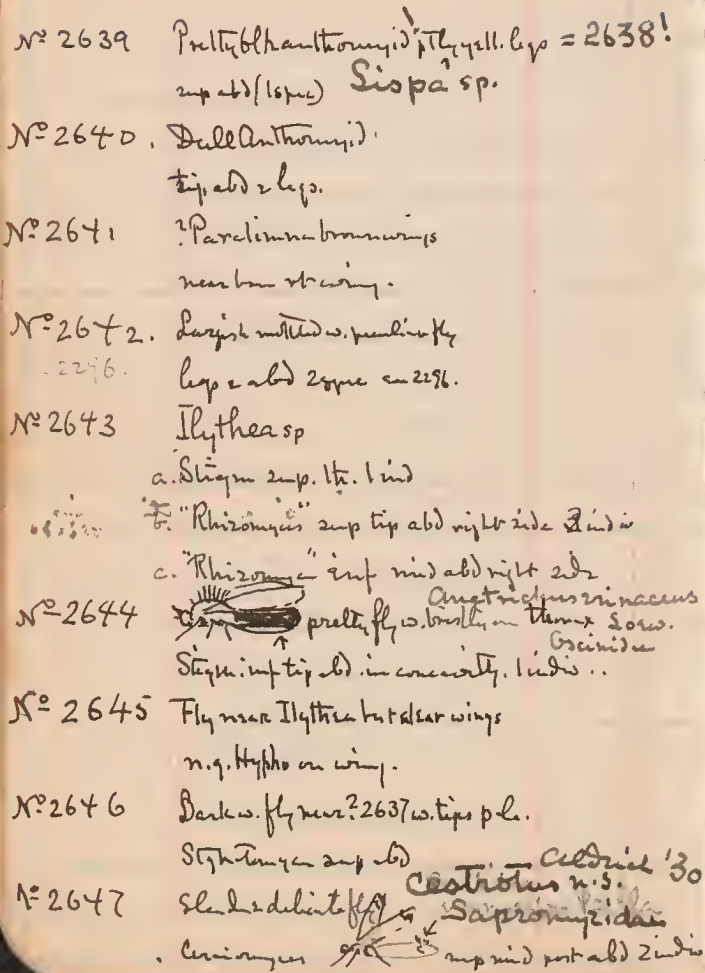 Nº 2639 Pretty blk anthomyid ptly yell. legs = 2638!
sup abd (1 spec) Lispa? sp.
Nº 2640. Dull Anthomyid.
tip abd & legs.
Nº 2641 ?Paralimna brown wings
near base rt wing.
Nº 2642. Largish mottled w. peculiar fly
2296. legs & abd 2 spec on 2296.
Nº 2643 Ilythea sp
a. Stigm sup. th. 1 ind
b. "Rhizomyces" sup tip abd right side 2 indiv
c. "Rhizomyces" inf mid abd right side
Nº 2644 pretty fly w. bristly on thorax Loew.
Oscinidae
Stigm. inf tip abd. in concavity. 1 indiv..
Nº 2645 Fly near Ilythea but clear wings
n.g. Hypho on wing.
Nº 2646 Dark w. fly near? 2637 w. tips
sup abd
Aldrich '30
Cestrotus n.s.
Nº 2647 Slender delicate fly Sapromyzidae
. Ceraiomyces sup mid post abd 2 indiv